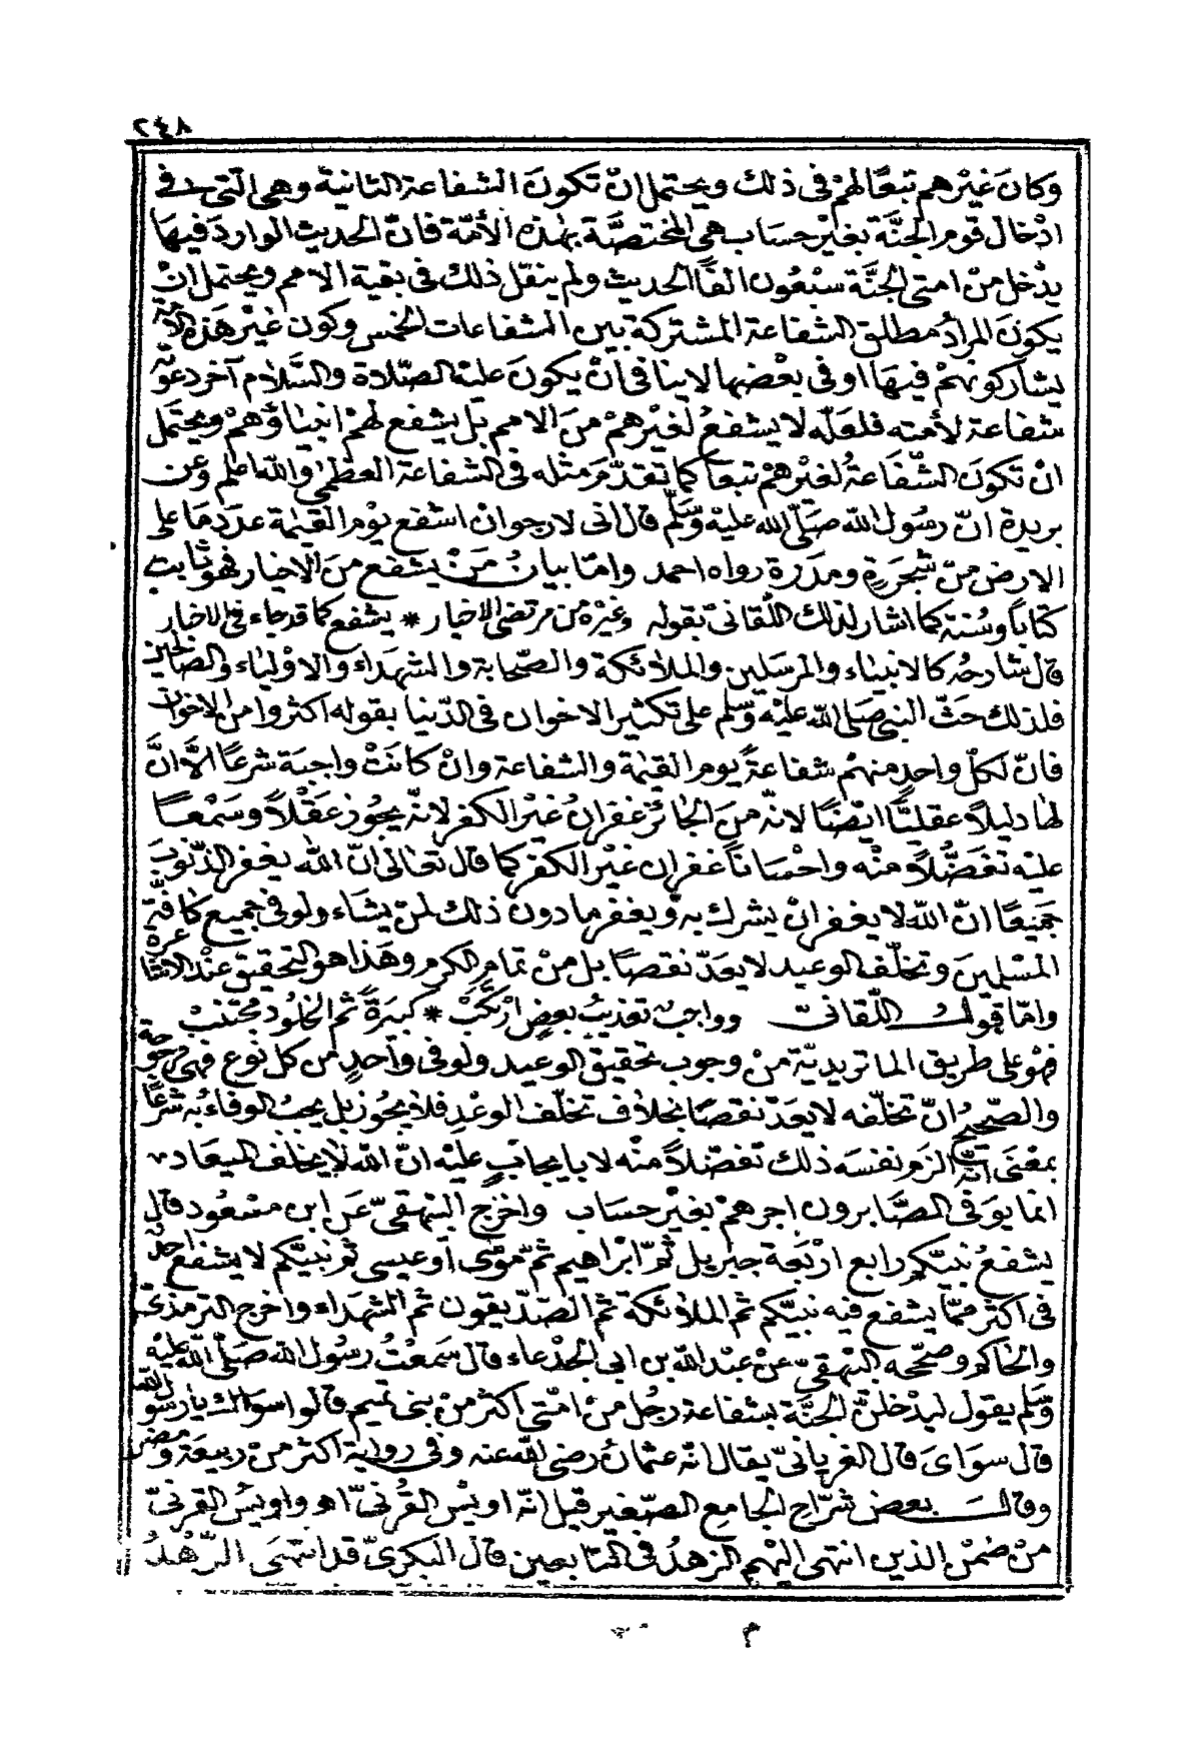 ٢٤٨
وَكانَ غيْرهم تبعًا لهمْ فى ذلك ويحتمل انّ تكونَ الشفاعة الثانية وهى التى فى
ادْخال قوم الجنَّة بغيْر حسَاب هى المختصَّة بهٰذه الأمّة فانّ الحديث الوارد فيهَا
يدْخل منْ امتى الجنَّة سبْعُون الفًا الحديث ولم ينقل ذلك فى بقية الامم ويحتمل انْ
يكونَ المرادُ مطلق الشفاعة المشتركة بين الشفاعات الخمس وكون غيْر هَذه الأمّة
يشاركونهمْ فيهَا اوفى بعْضها لا ينافى انْ يكونَ عليْه الصّلاة والسَّلام آخر دعوَته
شفاعة لأمته فلعَلّه لا يشفعُ لغيْرهمْ منَ الامم بَل يشفع لهمْ انبيَاؤهمْ ويحتمل
انْ تكونَ الشّفاعةُ لغيْرهمْ تبعاً كما تقدّم مَثله فى الشفاعة العظمٰى والله اعلم وَعن
بريدة انّ رسُول الله صَلّى الله عليْه وَسَّلم قال انى لارجو انْ اشفع يوْم القيٰمة عدَد مَا على
الارض منْ شجَرَةٍ ومدَرَة رواه احمد وامّا بيانُ مَنْ يشفع منَ الاخيار فهو ثابت
كتاباً وسُنة كما اشار لذلك اللّقانىّ بقوله وغيْره من مرتضى الاخيار * يشفع كما قد جاء فى الاخبار
قال شارحُه كالانبيَاء والمرسَلين والملائكة والصّحابة والشهَداء والاوْليَاء والصَّالحين
فلذلك حَثّ النبى صَلى الله عليْه وَسّلم على تكثير الاخوان فى الدّنيا بقوله اكثروا من الاخوان
فانّ لكلّ واحدٍ منهُم شفاعةً يوم القيٰمة والشفاعة وانْ كانَتْ واجبَة شرعًا الّا انَّ
لها دليلاً عقليًّا ايْضًا لانّه منَ الجَائز غفرانُ غيْر الكفر لانّه يجُوز عَقْلاً وسَمْعًا
عليْه تفَضُّلاً منْه واحْسَاناً غفران غيْر الكفر كما قال تعَالىٰ انّ الله يغفر الذّنوبَ
جَميْعًا انّ الله لا يغفر انْ يشرك به وَيغفر ما دون ذلك لمنْ يشَاء ولو فى جميع كافّة
المسْلمينَ وتخلّف الوعيد لا يعَدّ نقصًا بل منْ تمام الكرم وهَذا هو التحقيق عنْد الاشاعرة
وامّا قولُ اللّقانىّ وواجبٌ تعْذيبُ بعضٍ ارْتكَبْ * كبيرَةً ثم الخلُود مجْتنَبْ
فهْو على طريق الماتريديّة منْ وجوب تحقيق الوعيد ولو فى واحدٍ من كل نوع فهى مرجوحة
والصّحيحُ انّ تخلّفه لا يعَدّ نقصًا بخلاف تخلّف الوعْدِ فلا يجُوز بل يجبُ الوفاء به شرعًا
بمعْنَى انّه الزم نفسَه ذلك تفضّلاً منْه لا بايجابٍ عليْه انّ الله لا يخلف الميعاد
انما يوَفى الصَّابرون اجرهمْ بغيْر حسَاب وَاخرج البيْهقىّ عَن ابن مسْعُود قال
يشفعُ نبيّكم رابع ارْبعَة جبْريل ثمّ ابْراهيم ثمّ موْسى اَو عيسى ثم نبيّكم لا يشفع احدٌ
فى اكثر ممّا يشفع فيه نبيّكم ثم الملائكة ثم الصّدّيقون ثم الشهَداء واخرج الترمذىّ
والحاكم وصحّحه البيْهقىّ عنْ عبْد الله بن ابى الجدْعاء قال سَمعْتُ رسُول الله صَلّى الله عليْه
وَسّلم يقول ليدْخلنّ الجنَّة بشفاعة رجُل منْ امّتى اكثر منْ بنى تميم قالوا سوَاك يا رسُول الله
قال سوَاىَ قال الفريابىّ يقال انّه عثمانُ رضى الله عنه وَفى رواية اكثر منْ ربيعَة وَمضر
وقالَ بعض شرّاح الجامع الصّغير قيل انّه اويْس القُرنىّ اهـ واويْس القرنىّ
منْ ضمْن الذين انتهى اليْهم الزهدُ فى التابعين قال البكرىّ قد انتهَى الزّهْدُ